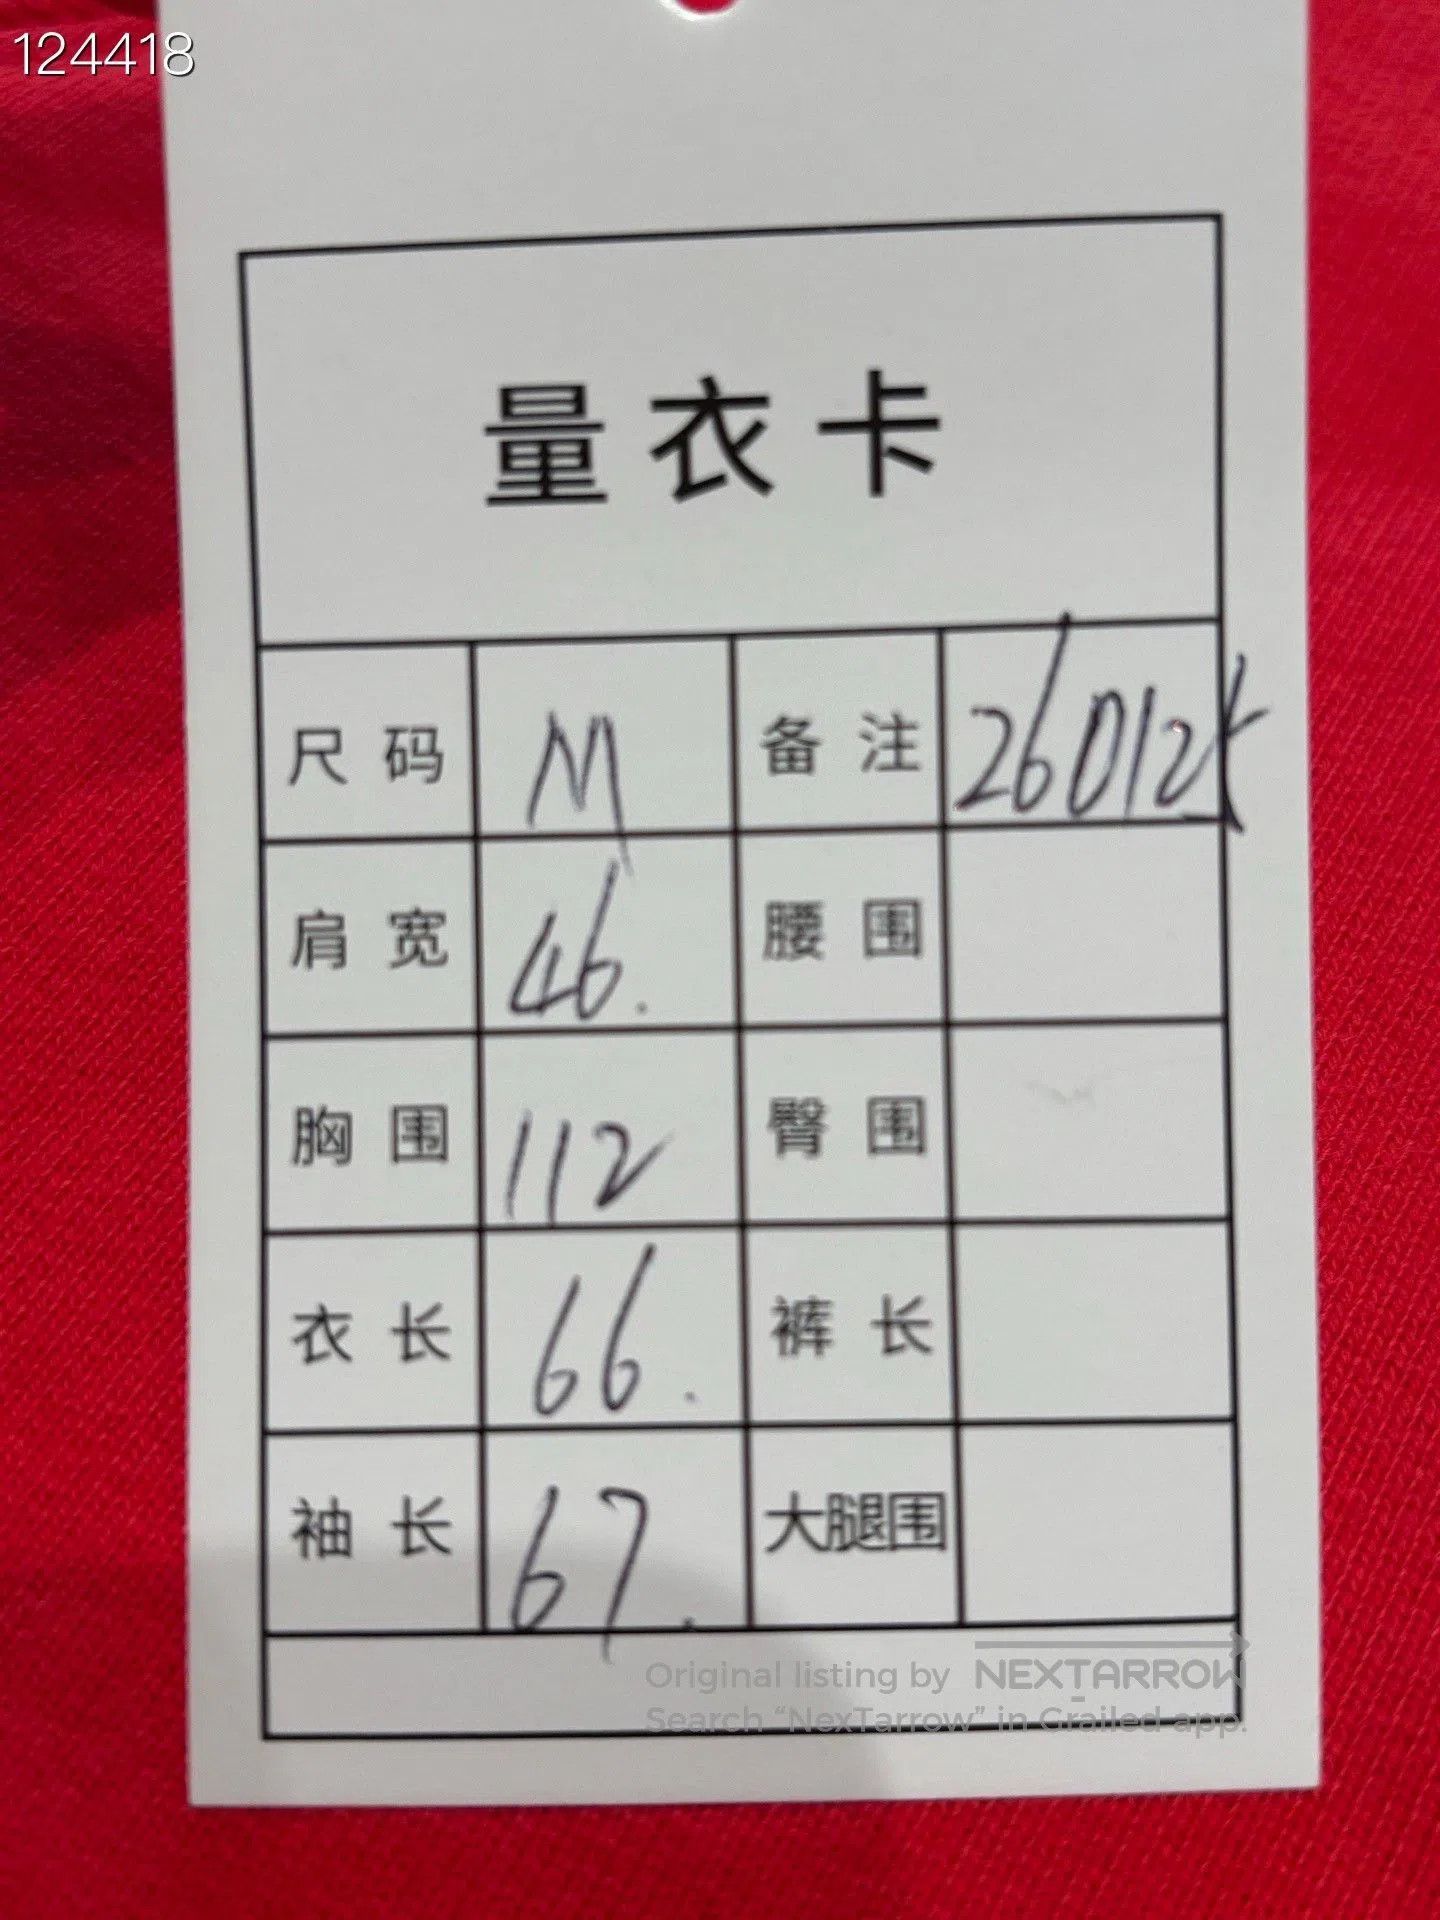 124418
量衣卡
尺码 M 备注 260125
肩宽 46. 腰围
胸围 112 臀围
衣长 66. 裤长
袖长 67. 大腿围
Original listing by NEXTARROW
Search “NexTarrow” in Grailed app.